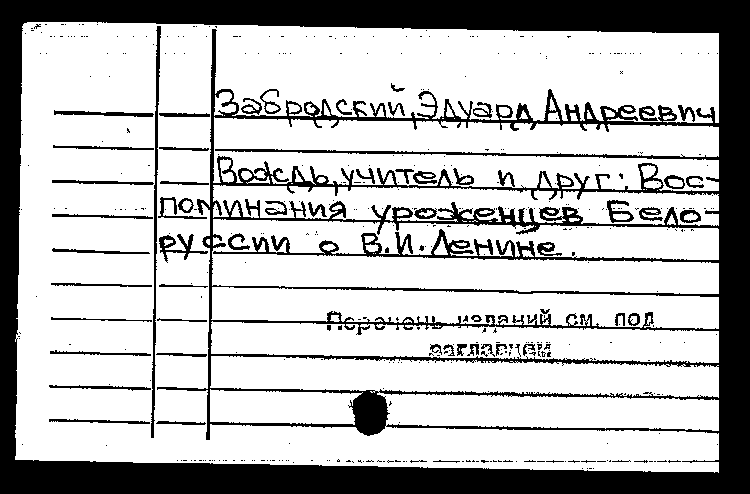 Забродский, Эдуард Андреевич
Вождь, учитель и друг: Вос-
поминания уроженцев Бело-
руссии о В.И. Ленине.
Перечень изданий см. под
заглавием